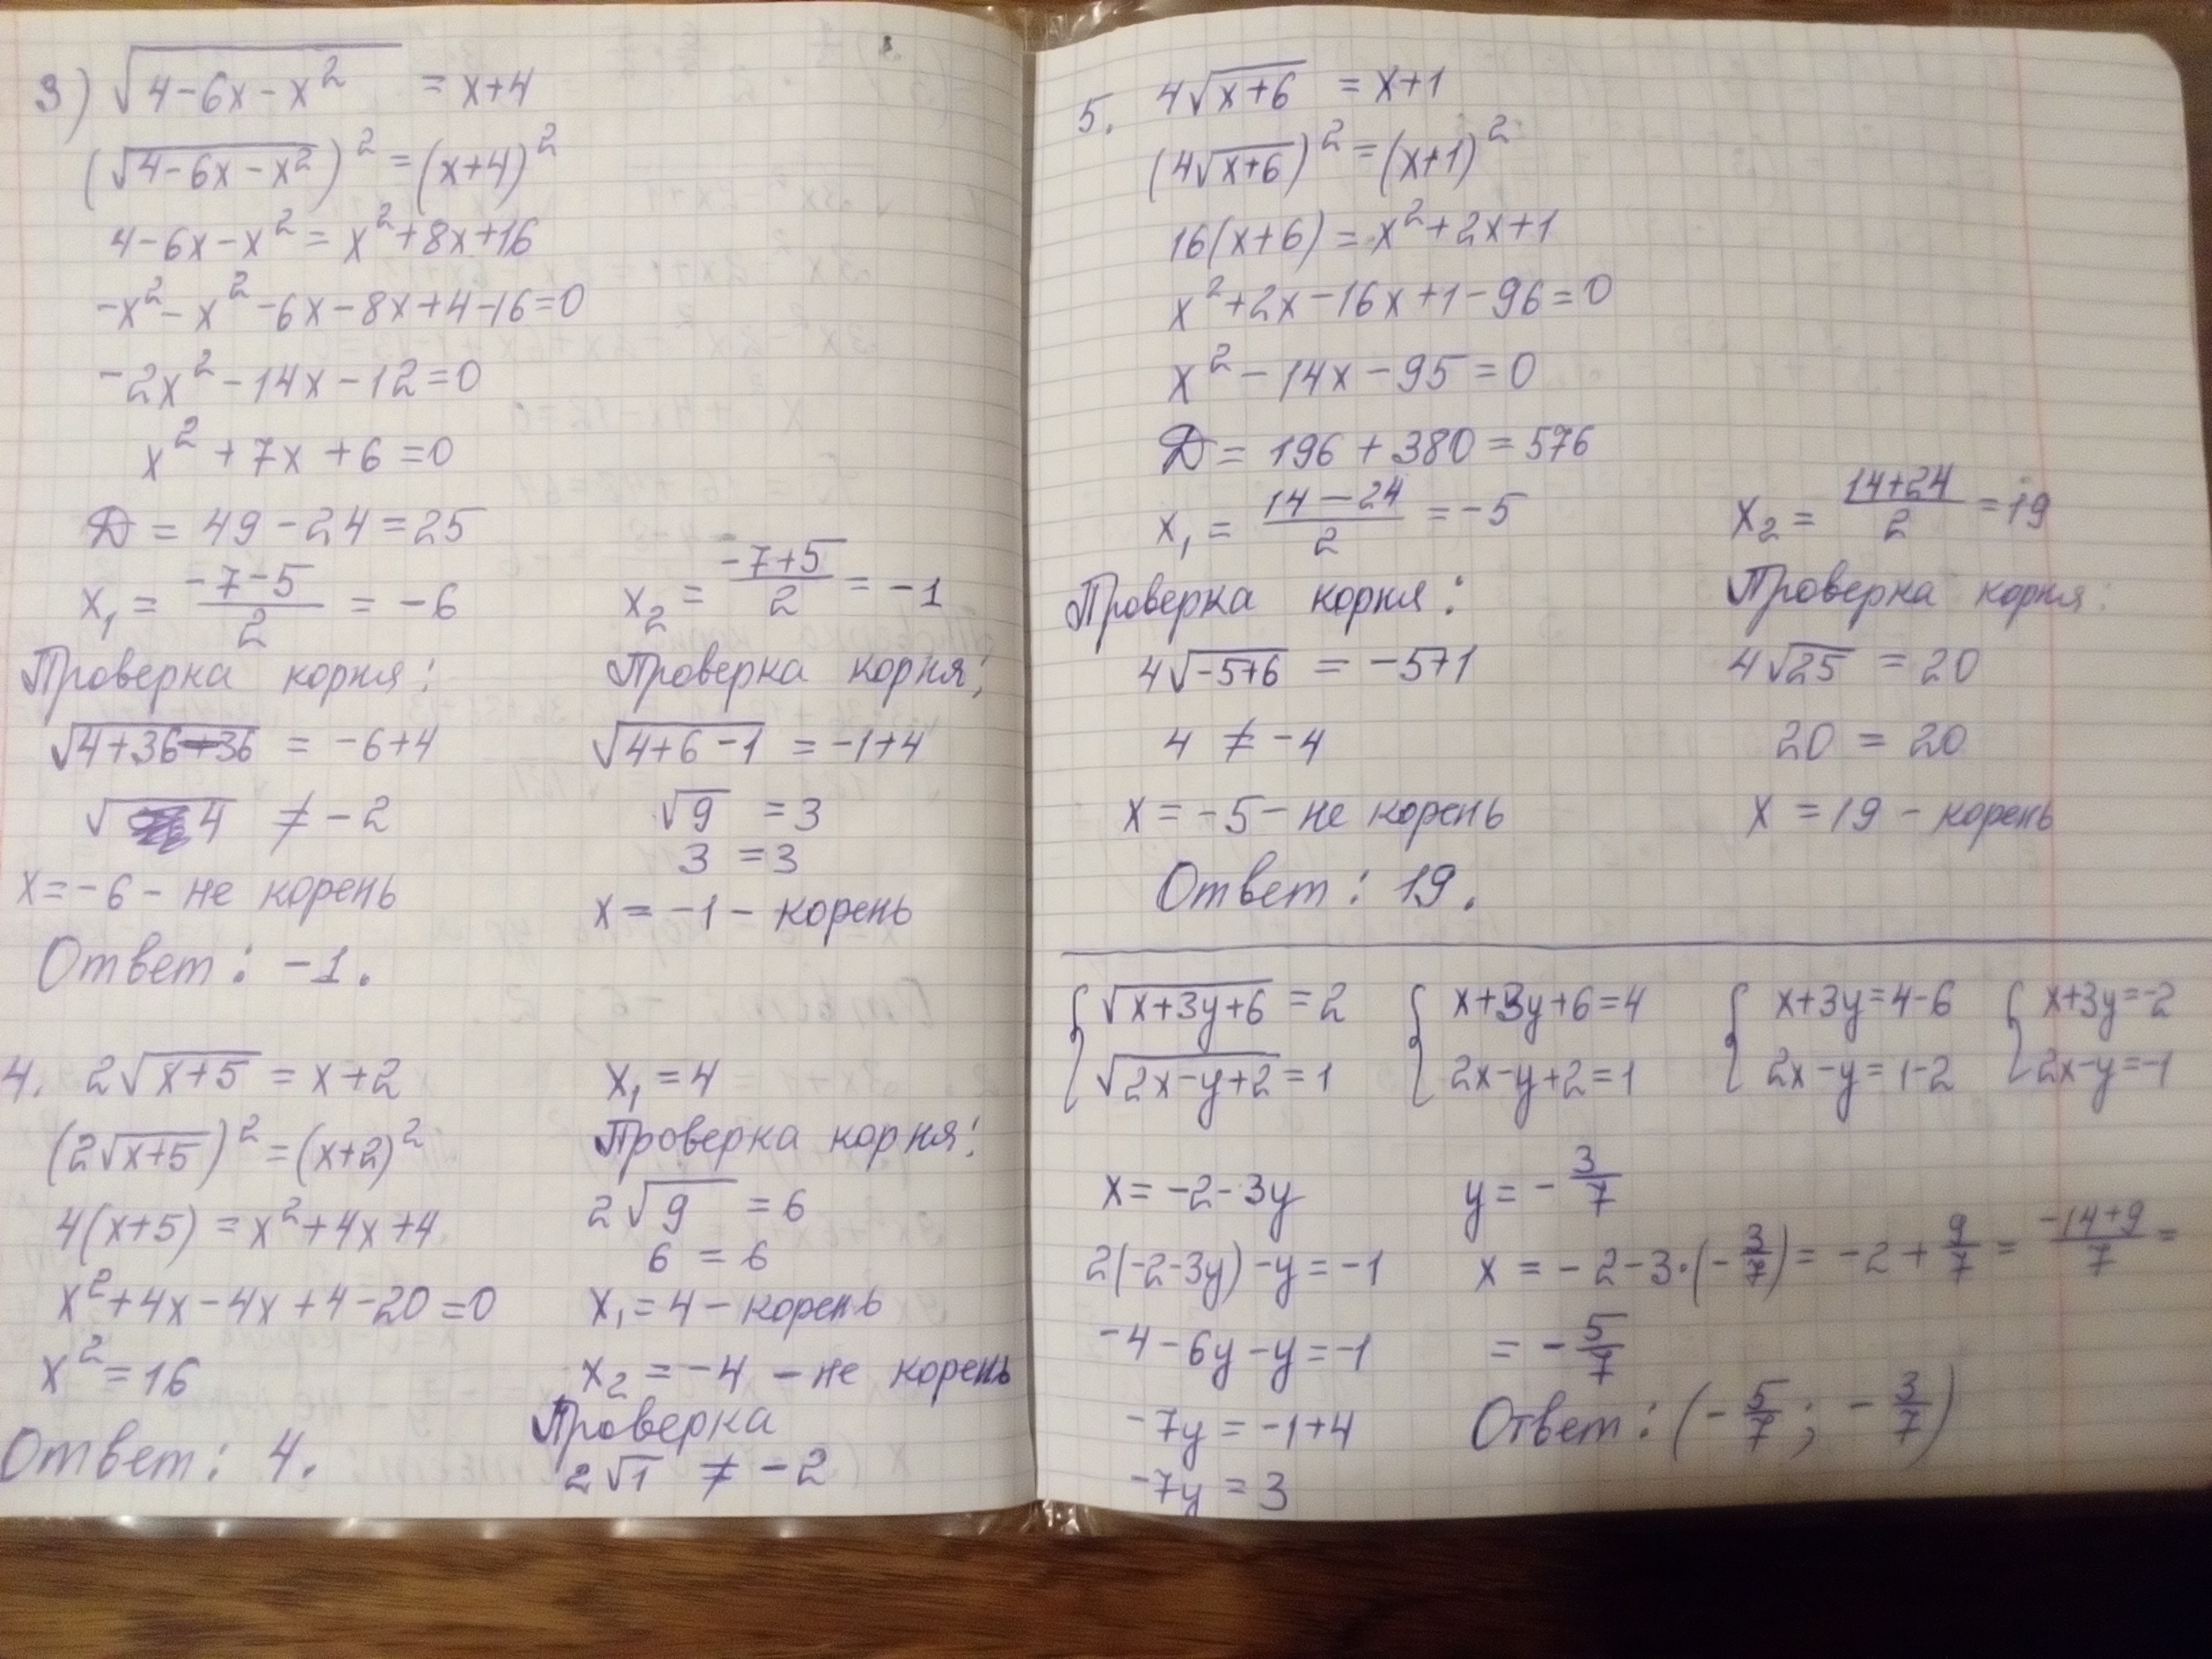 3) √(4-6x-x²) = x+4
(√(4-6x-x²))² = (x+4)²
4-6x-x² = x²+8x+16
-x²-x²-6x-8x+4-16=0
-2x²-14x-12=0
x²+7x+6=0
D = 49-24=25
x₁ = (-7-5)/2 = -6
x₂ = (-7+5)/2 = -1
Проверка корня:
√(4+36-36) = -6+4
√4 ≠ -2
x=-6 - не корень
Проверка корня:
√(4+6-1) = -1+4
√9 = 3
3 = 3
x = -1 - корень
Ответ: -1.
4. 2√(x+5) = x+2
(2√(x+5))² = (x+2)²
4(x+5) = x²+4x+4
x²+4x-4x+4-20=0
x²=16
Ответ: 4.
x₁ = 4
Проверка корня:
2√9 = 6
6 = 6
x₁=4 - корень
x₂ = -4 - не корень
Проверка
2√1 ≠ -2
5. 4√(x+6) = x+1
(4√(x+6))² = (x+1)²
16(x+6) = x²+2x+1
x²+2x-16x+1-96=0
x²-14x-95=0
D = 196+380=576
x₁ = (14-24)/2 = -5
x₂ = (14+24)/2 = 19
Проверка корня:
4√(-5+6) = -5+1
4 ≠ -4
x = -5 - не корень
Проверка корня:
4√25 = 20
20 = 20
x = 19 - корень
Ответ: 19.
{ √(x+3y+6) = 2 { x+3y+6=4 { x+3y=4-6 { x+3y=-2
√(2x-y+2) = 1 2x-y+2=1 2x-y=1-2 2x-y=-1
x = -2-3y
2(-2-3y)-y=-1
-4-6y-y=-1
-7y = -1+4
-7y = 3
y = -3/7
x = -2-3·(-3/7) = -2+9/7 = (-14+9)/7 =
= -5/7
Ответ: (-5/7; -3/7)